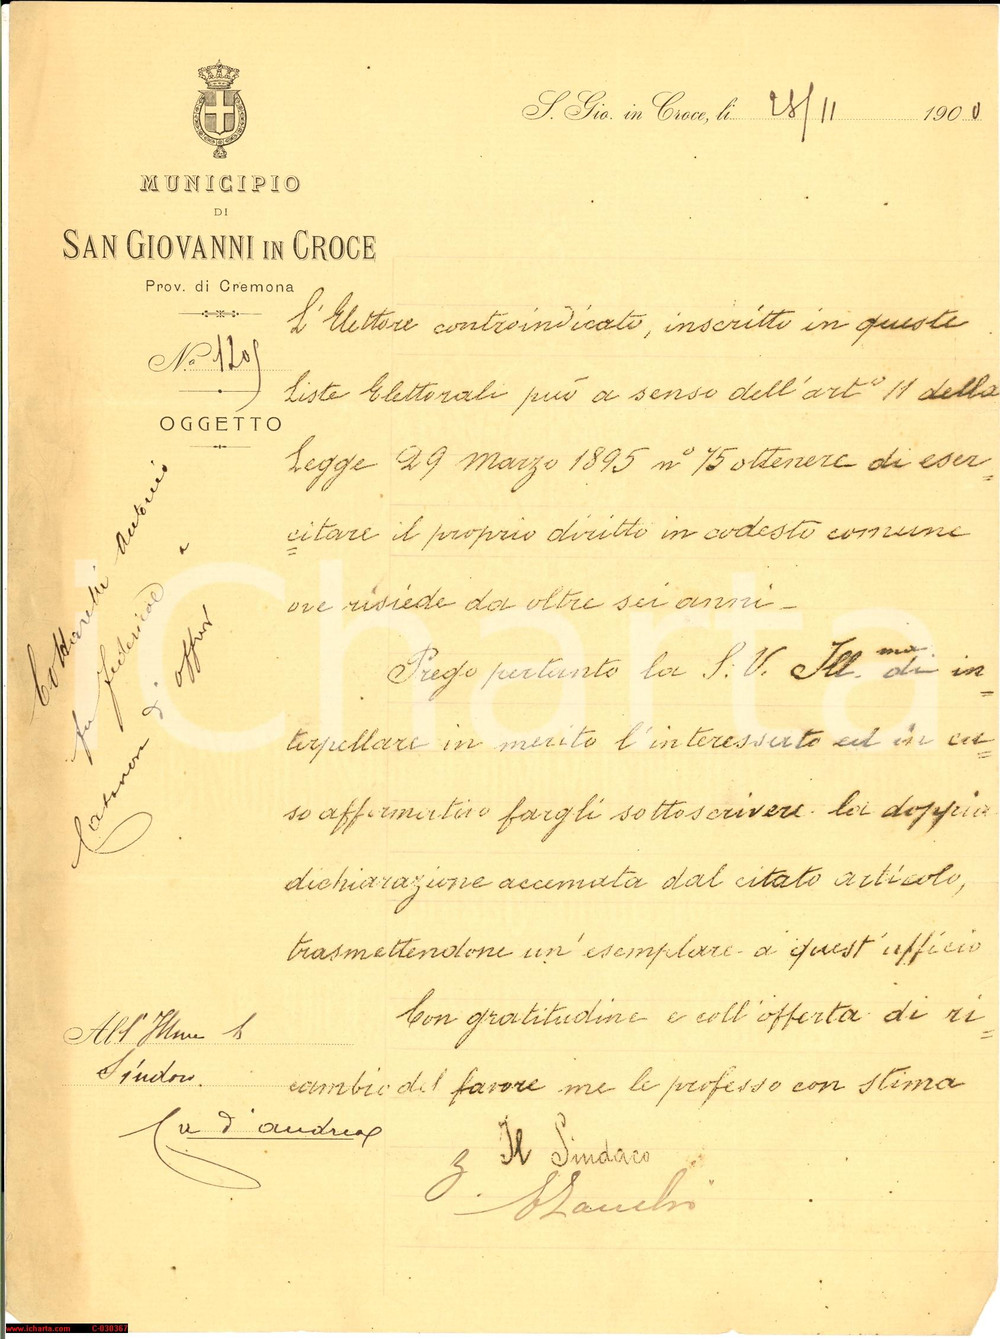 S. Gio. in Croce, li 28/11 1900
MUNICIPIO
DI
SAN GIOVANNI IN CROCE
Prov. di Cremona
No. 1205
OGGETTO
Antonio
fu Federico
a
offrir
L'Elettore controindicato, inscritto in queste
Liste Elettorali può a senso dell'art.º 11 della
Legge 29 Marzo 1895 nº 75 ottenere di eser=
=citare il proprio diritto in codesto comune
ove risiede da oltre sei anni_
Prego pertanto la S. V. Ill.ma di in=
terpellare in merito l'interessato ed in ca=
so affermativo fargli sottoscrivere la doppia
dichiarazione accennata dal citato articolo,
trasmettendone un'esemplare a quest'ufficio
Con gratitudine e coll'offerta di ri=
cambio del favore me le professo con stima
All'Illmo
Sindaco
Ca d'andrea
Il Sindaco
iCharta
www.icharta.com C-030367